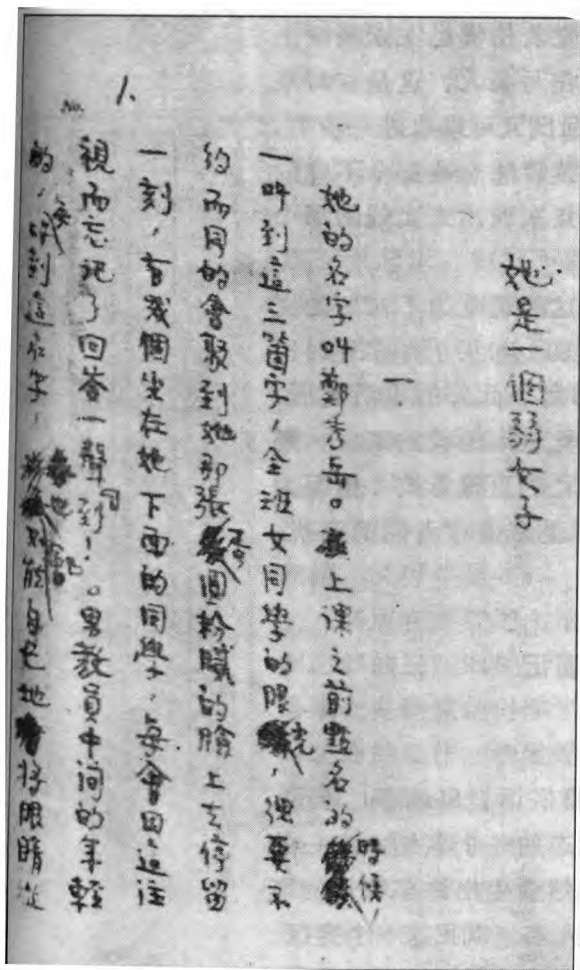 No. 1.
她是一個弱女子
一
她的名字叫鄭秀岳。上課之前點名的時候,
一叫到這三箇字,全班女同學的眼光,便要不
約而同的會聚到她那張圓粉膩的臉上去停留
一刻,有幾個坐在她下面的同學,每會因這注
視而忘記了回答一聲『到!』。男教員中間的年輕
的,每叫到這名字,也會不能自已地將眼睛從